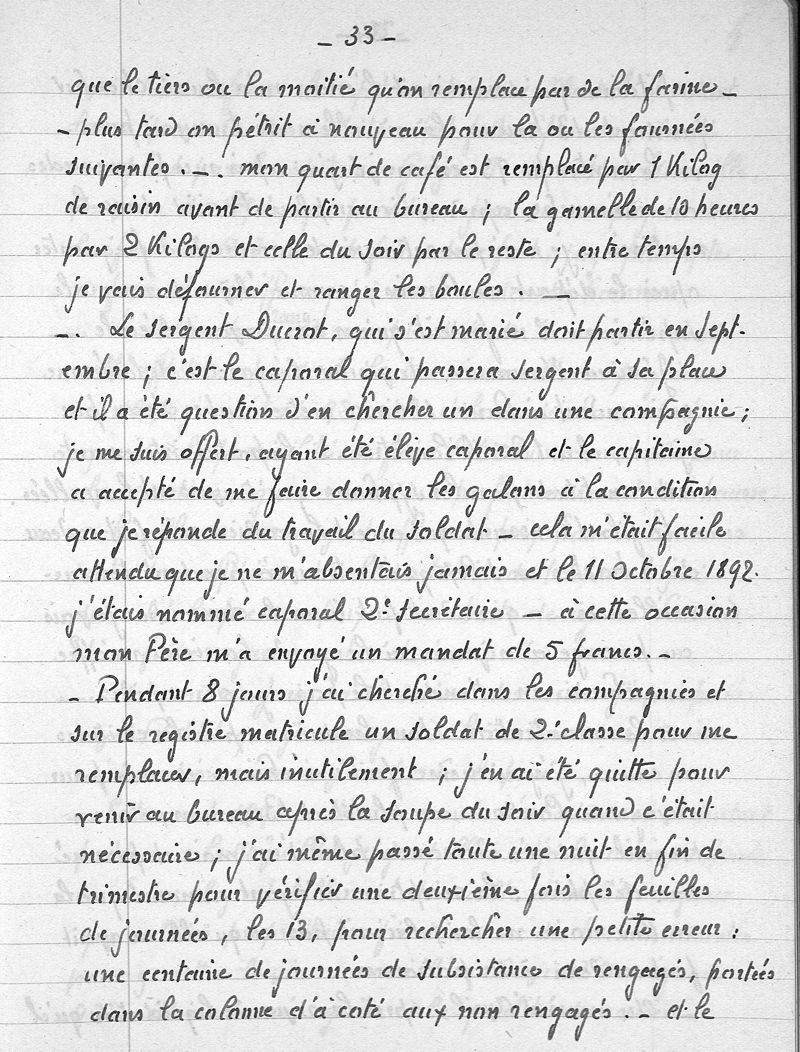 - 33 -
que le tiers ou la moitié qu'on remplace par de la farine -
- plus tard on pétrit à nouveau pour la ou les fournées
suivantes. - . mon quart de café est remplacé par 1 Kilog
de raisin avant de partir au bureau ; la gamelle de 10 heures
par 2 Kilogs et celle du soir par le reste ; entre temps
je vais défourner et ranger les boules —
- . Le sergent Ducrot, qui s'est marié doit partir en Sept-
embre ; c'est le caporal qui passera sergent à sa place
et il a été question d'en chercher un dans une compagnie ;
je me suis offert, ayant été élève caporal et le capitaine
a accepté de me faire donner les galons à la condition
que je réponde du travail du soldat - cela m'était facile
attendu que je ne m'absentais jamais et le 11 Octobre 1892.
j'étais nommé caporal 2e secrétaire - à cette occasion
mon Père m'a envoyé un mandat de 5 francs. -
- Pendant 8 jours j'ai cherché dans les compagnies et
sur le registre matricule un soldat de 2e classe pour me
remplacer, mais inutilement ; j'en ai été quitte pour
venir au bureau après la soupe du soir quand c'était
nécessaire ; j'ai même passé toute une nuit en fin de
trimestre pour vérifier une deuxième fois les feuilles
de journées, les 13, pour rechercher une petite erreur :
une centaine de journées de subsistance de rengagés, portées
dans la colonne d'à coté aux non rengagés. - et le